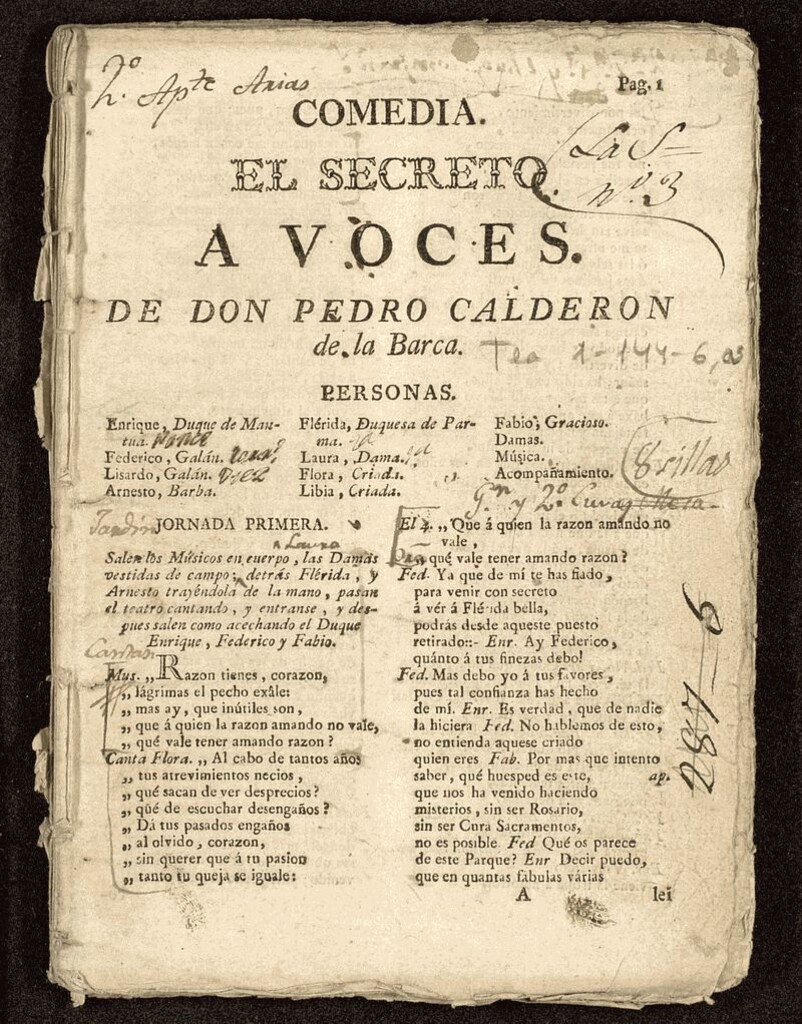 2.º Apte Arias
Pag. 1
COMEDIA.
EL SECRETO
La S
n.º 3
A VOCES.
DE DON PEDRO CALDERON
de la Barca.
Tea 1-144-6, a3
PERSONAS.
Enrique, Duque de Man-
tua. Ponce
Federico, Galán.
Lisardo, Galán.
Arnesto, Barba.
Flérida, Duquesa de Par-
ma.
Laura, Dama.
Flora, Criada.
Libia, Criada.
Fabio, Gracioso.
Damas.
Música.
Acompañamiento.
8 sillas
Jardin
JORNADA PRIMERA.
Laura
Salen los Músicos en cuerpo, las Damas
vestidas de campo; detrás Flérida, y
Arnesto trayéndola de la mano, pasan
el teatro cantando, y entranse, y des-
pues salen como acechando el Duque
Enrique, Federico y Fabio.
Cantan
Mus. ,,Razon tienes, corazon,
,, lágrimas el pecho exâle:
,, mas ay, que inútiles son,
,, que á quien la razon amando no vale,
,, qué vale tener amando razon?
Canta Flora. ,, Al cabo de tantos años
,, tus atrevimientos necios,
,, qué sacan de ver desprecios?
,, qué de escuchar desengaños?
,, Dá tus pasados engaños
,, al olvido, corazon,
,, sin querer que á tu pasion
,, tanto tu queja se iguale:
El 4. ,, Que á quien la razon amando no
vale,
qué vale tener amando razon?
Fed. Ya que de mí te has fiado,
para venir con secreto
á vér á Flérida bella,
podrás desde aqueste puesto
retirado::- Enr. Ay Federico,
quánto á tus finezas debo!
Fed. Mas debo yo á tus favores,
pues tal confianza has hecho
de mí. Enr. Es verdad, que de nadie
la hiciera Fed. No hablemos de esto,
no entienda aquese criado
quien eres Fab. Por mas que intento
saber, qué huesped es este, ap.
que nos ha venido haciendo
misterios, sin ser Rosario,
sin ser Cura Sacramentos,
no es posible Fed Qué os parece
de este Parque? Enr Decir puedo,
que en quantas fábulas várias
A
lei